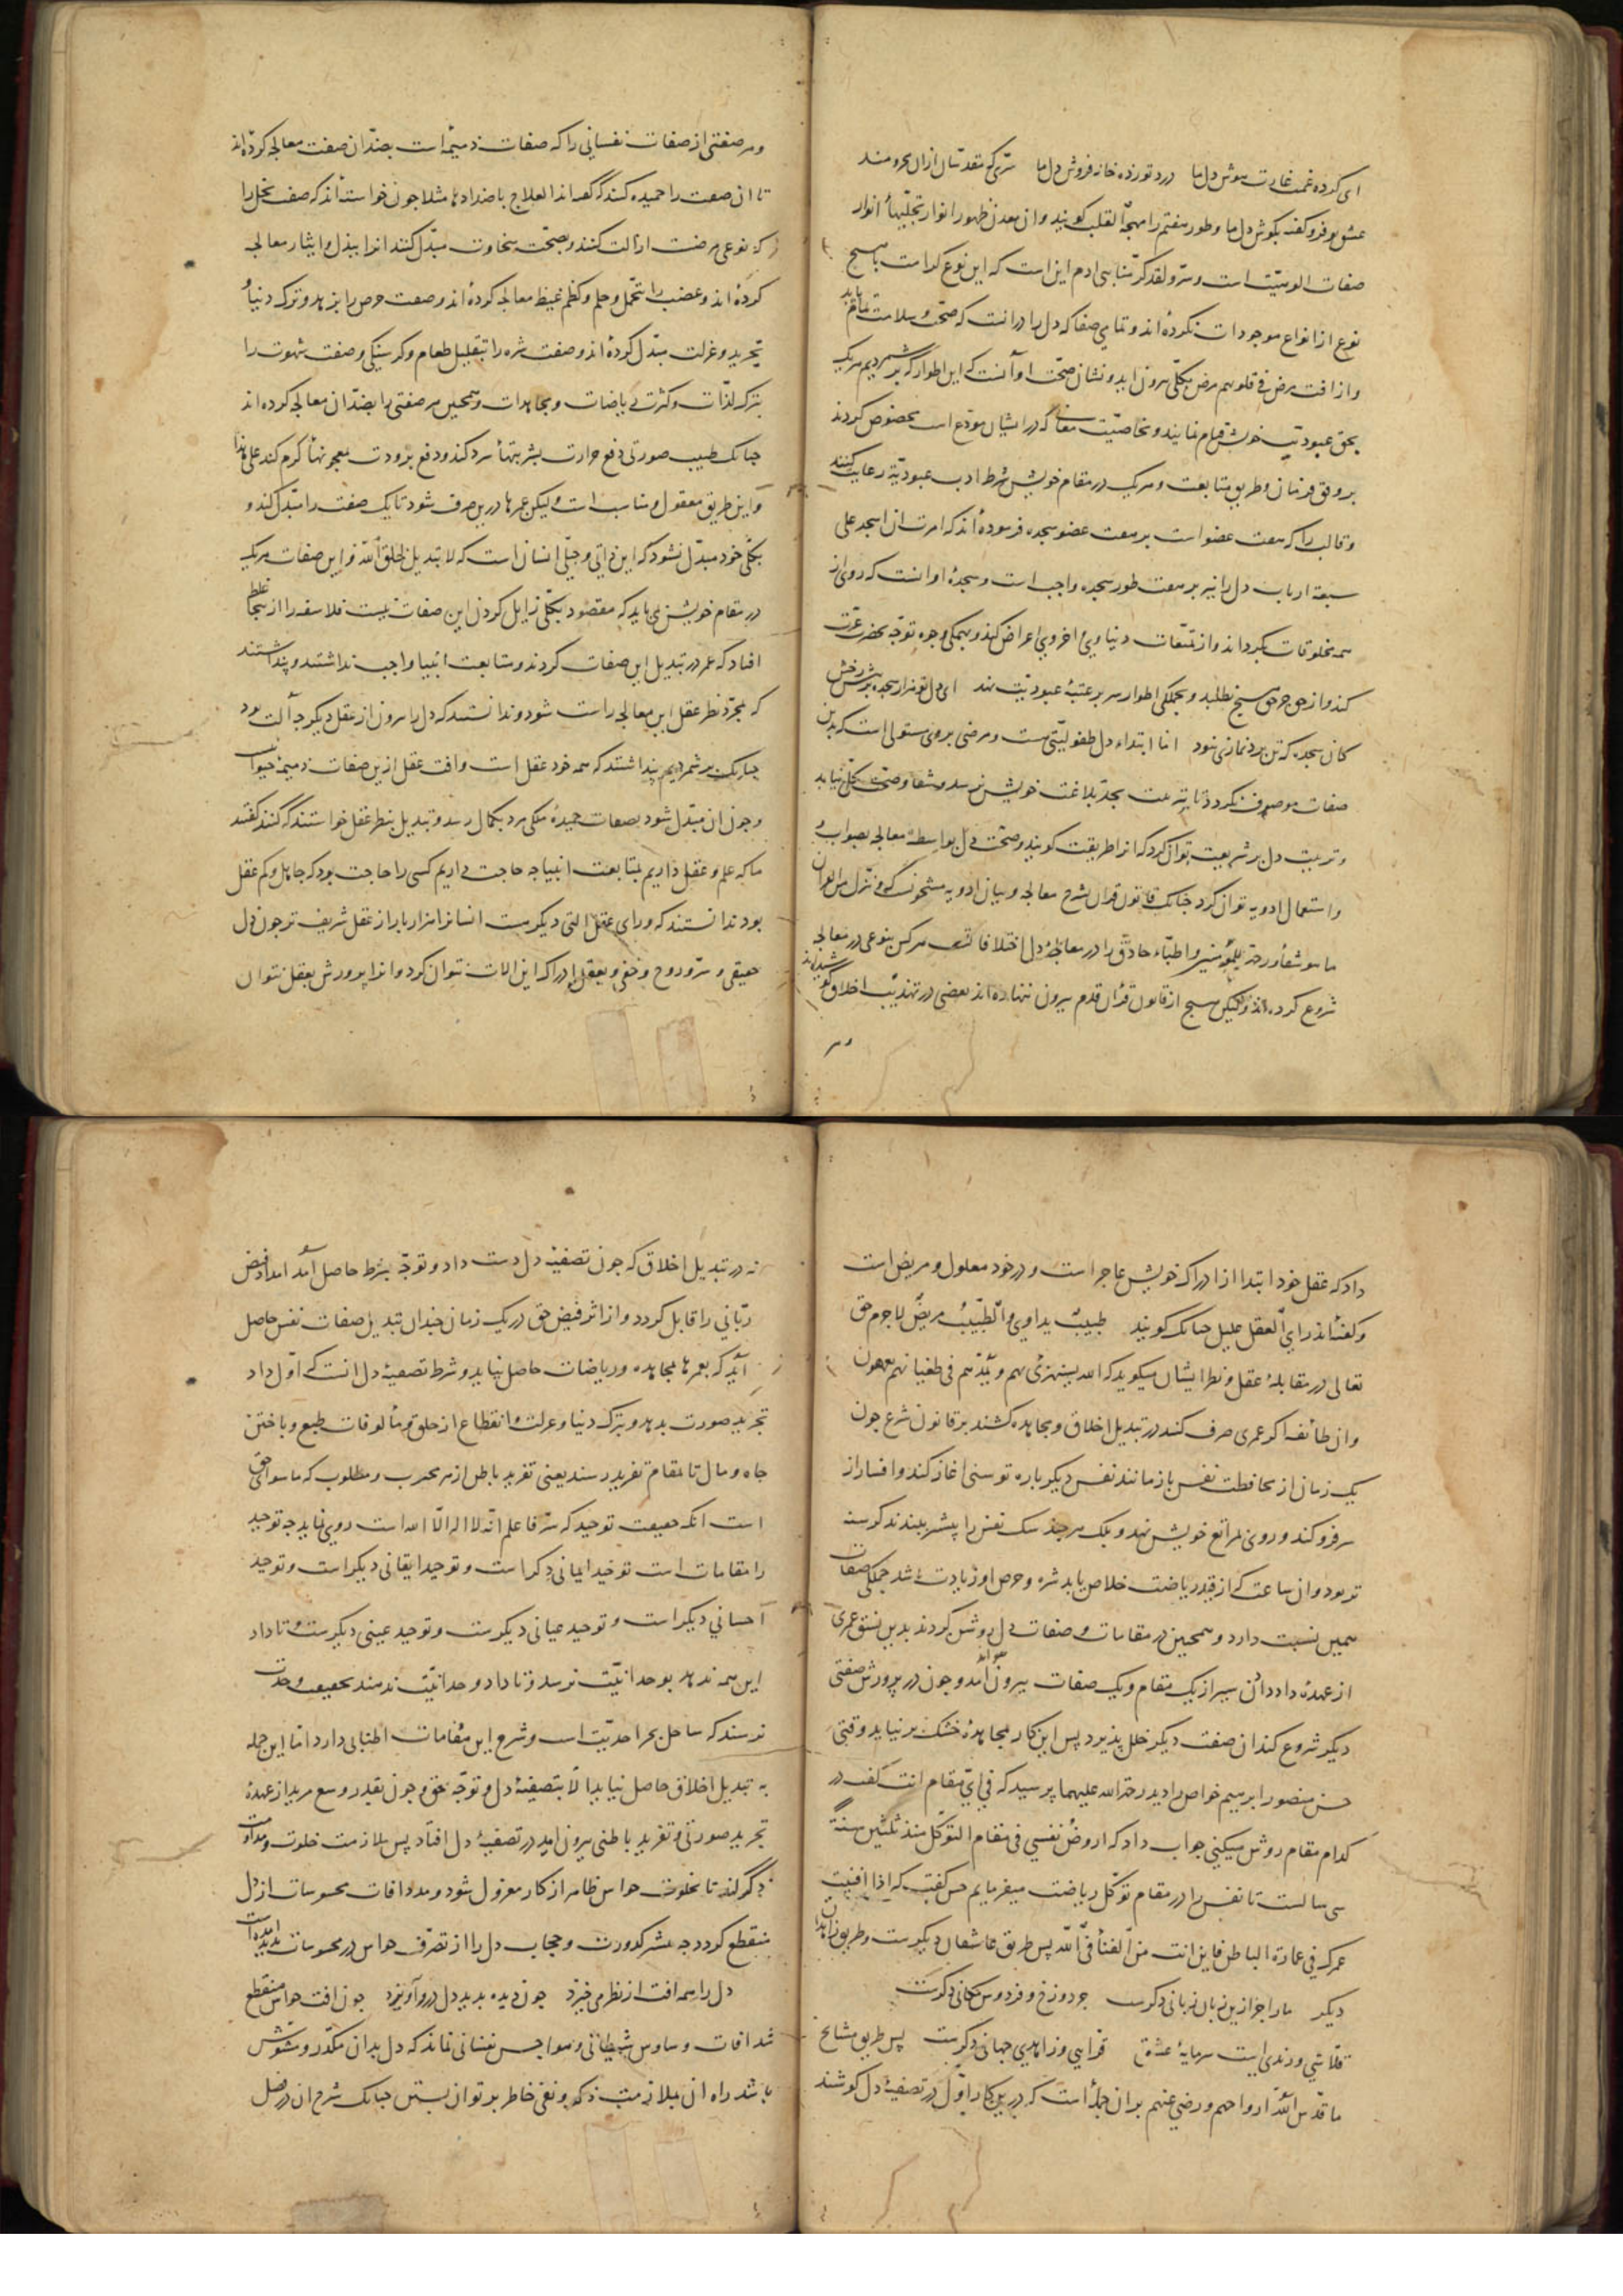 ای کرده غمت غارت هوش دل ما درد تو زده خانه فروش دل ما سرّی که مقدسان ازان محرومند
عشق تو فرو گفته بگوش دل ما و طور هفتم را مهجة القلب گویند وان معدن ظهور انوار تجلّیهاء انوار
صفات الوهیّت است و سرّ ولقد کرّمنا بنی ادم این است که این نوع کرامت با هیچ
نوع از انواع موجودات نکرده‌اند و تمامی صفا که دل را درانست که صحّت و سلامت تمام یابد
و از افت مرض فی قلوبهم مرض بکلّی بیرون اید و نشان صحّت او آنست که این اطوار که برشمردیم هریک
بحق عبودیت خویش قیام نمایند و بخاصیّت معانی که در ایشان مودع است مخصوص کردند
بر وفق فرمان و طریق متابعت و هریک در مقام خویش شرط ادب عبودیّة رعایت کنند
و قالب را که هفت عضو است بر هفت عضو سجده فرموده‌اند که امرت ان اسجد علی
سبعة اراب دل را نیز بر هفت طور سجده واجب است و سجدهٔ او انست که روی از
همه مخلوقات بگرداند و از تمتّعات دنیاوی و اخروی اعراض کند و بهمگی وجوه توجّه بحضرت عزّت
کند و از حق جز حق هیچ نطلبد و بجملگی اطوار سر بر عتبهٔ عبودیّت نهد ای دل تو هزار سجده بر پیش رخش
کان سجده که تن برد نمازی نبود امّا ابتداء دل طفولیّتی هست و مرضی بروی مستولی است که بدین
صفات موصوف نکردد تا بتربیت بحدّ بلاغت خویش نرسد و شفا و صحّت کلّی نیابد
و تربیت دل بر شریعت توان کرد که انرا طریقت گویند و صحّت دل بواسطهٔ معالجه بصواب
و استعمال ادویه توان کرد جنانک قانون قران بشرح معالجه و بیان ادویه مشحونست که و ننزّل من القران
ما هو شفاء و رحمة للمؤمنین و اطبّاء حاذق را در معالجهٔ دل اختلافاتست هرکس بنوعی در معالجه
شروع کرده‌اند ولیکن هیج از قانون قران قدم بیرون ننهاده‌اند بعضی در تهذیب اخلاق کوشیده‌اند
و هر
و هر صفتی از صفات نفسانی را که صفات ذمیمه است بضدّ ان صفت معالجه کرده‌اند
تا ان صفت را حمیده کنند که گفته‌اند العلاج باضدادها مثلا جون خواسته‌اند که صفت بخل را
که نوعی مرضست ازالت کنند و بصحّت سخاوت مبدّل کنند انرا ببذل و ایثار معالجه
کرده‌اند و غضب را بتحمّل و حلم و کظم غیظ معالجه کرده‌اند و صفت حرص را بزهد و ترک دنیا
بتجرید و عزلت مبدّل کرده‌اند و صفت شره را بتقلیل طعام و گرسنگی و صفت شهوت را
بترک لذّات و کثرت ریاضات و مجاهدات و همجنین هر صفتی را بضدّ ان معالجه کرده‌اند
جنانک طبیب صورتی دفع حرارت بشربتهاء سرد کند و دفع برودت بمعجونهاء گرم کند علی هذا
و این طریق معقول و مناسب است ولیکن عمرها درین صرف شود تا یک صفت را مبدّل کند و
بکلّی خود مبدّل نشود که این ذاتی و جبلّی انسان است که لا تبدیل لخلق اللّه و این صفات هریک
در مقام خویش می‌باید که مقصود بکلّی زایل کردن این صفات نیست فلاسفه را ازینجا غلط
افتاد که عمر در تبدیل این صفات کردند و متابعت انبیا واجب نداشتند و پنداشتند
که بمجرّد نظر عقل این معالجه راست شود و ندانستند که دل را بیرون از عقل دیگر جه آلت بود
جنانک برشمردیم پنداشتند که همه خود عقل است و افت عقل ازین صفات ذمیمهٔ حیوانیست
و جون ان مبدّل شود بصفات حمیدهٔ ملکی مرد بکمال رسد و تبدیل بنظر عقل خواستند که کنند گفتند
ما که علم و عقل داریم بمتابعت انبیا جه حاجت داریم کسی را حاجت بود که جاهل و کم عقل
بود ندانستند که ورای عقل التی دیگر هست انسانرا هزار بار از عقل شریف تر جون دل
حقیقی و سرّ و روح و خفی و بعقل ادراک این الات نتوان کرد و انرا پرورش بعقل نتوان
داد که عقل خود ابتدا از ادراک خویش عاجز است و در خود معلول و مریض است
و گفته‌اند رای العقل علیل جنانک گویند طبیبٌ یداوی والطّبیبُ مریضٌ لاجرم حق
تعالی در مقابلهٔ عقل و نظر ایشان میگوید که الله یستهزئ بهم و یمدّهم فی طغیانهم یعمهون
وان طائفه اگر عمری صرف کنند در تبدیل اخلاق و مجاهده کشند بر قانون شرع جون
یک زمان از محافظت نفس باز مانند نفس دیگر باره توسنی اغاز کند و افسار از
سر فرو کند و روی بمراتع خویش نهد و بلک هر جند سک نفس را بیشتر ببندند گرسنه
تر بود وان ساعت که از قید ریاضت خلاص یابد شره و حرص او زیادت باشد جملگی صفات
همین نسبت دارد و همجنین در مقامات و صفات دل روش کردند بدین نسق عمری
از عهدهٔ داد دادن سیر از یک مقام و یک صفات بیرون نتواند آمد و جون در پرورش صفتی
دیگر شروع کند ان صفت دیگر خلل پذیرد پس این کار بمجاهدهٔ خشک برنیاید وقتی
حسین منصور ابرهیم خواص را دید رحمة الله علیهما پرسید که فی ایّ مقام انت گفت در
کدام مقام روش میکنی جواب داد که اروضُ نفسی فی مقام التوکّل منذ ثلثین سنةً
سی سالست تا نفس را در مقام توکّل ریاضت میفرمایم حسین گفت که اذا افنیت
عمرک فی عمارة الباطن فاین انت من الفناء فی اللّه پس طریق عاشقان دیگرست و طریق زاهدان
دیگر مارا جز ازین زبان زبانی دگرست جز دوزخ و فردوس مکانی دگرست
قلاشی و رندی است سرمایهٔ عشق قرایی و زاهدی جهانی دگرست پس طریق مشایخ
ما قدّس اللّه ارواحهم و رضی عنهم بران جمله است که درین کار اوّل در تصفیهٔ دل کوشند
نه در تبدیل اخلاق که جون تصفیهٔ دل دست داد و توجّه بشرط حاصل آمد امداد فیض
ربّانی را قابل گردد و از اثر فیض حق در یک زمان جندان تبدیل صفات نفس حاصل
آید که بعمرها بمجاهده و ریاضات حاصل نیاید و شرط تصفیهٔ دل انست که اوّل داد
تجرید صورت بدهد و بترک دنیا و عزلت و انقطاع از خلق و مألوفات طبع و باختن
جاه و مال تا بمقام تفرید رسند یعنی تفرید باطن از هر محبوب و مطلوب که ماسوای حق
است انگه حقیقت توحید که سرّ فاعلم انّه لا اله الّا الله است روی نماید جه توحید
را مقامات است توحید ایمانی دگر است و توحید ایقانی دیگر است و توحید
احسانی دیگر است و توحید عیانی دیگرست و توحید عینی دیگرست و تا داد
این همه ندهد بوحدانیّت نرسد و تا داد وحدانیّت ندهند بحقیقت وحدت
نرسند که ساحل بحر احدیّت است و شرح این مقامات اطنابی دارد امّا این جمله
به تبدیل اخلاق حاصل نیاید الّا بتصفیهٔ دل و توجّه بحق و جون بقدر وسع مرید از عهدهٔ
تجرید صورتی و تفرید باطنی بیرون امد در تصفیهٔ دل افتاد پس ملازمت خلوت و مداومت
ذکر کند تا بخلوت حواس ظاهر از کار معزول شود و مدد افات محسوسات از دل
منقطع گردد جه بیشتر کدورت و حجاب دل را از تصرّف حواس در محسوسات پدید امده است
دل را همه افت از نظر می خیزد جون دیده بدید دل درو آویزد جون افت حواس منقطع
شد افات وساوس شیطانی و هواجس نفسانی ماند که دل بدان مکدّر و مشوّش
باشد راه ان بملازمت ذکر و نفی خاطر بر توان بستن جنانک شرح ان در فصل